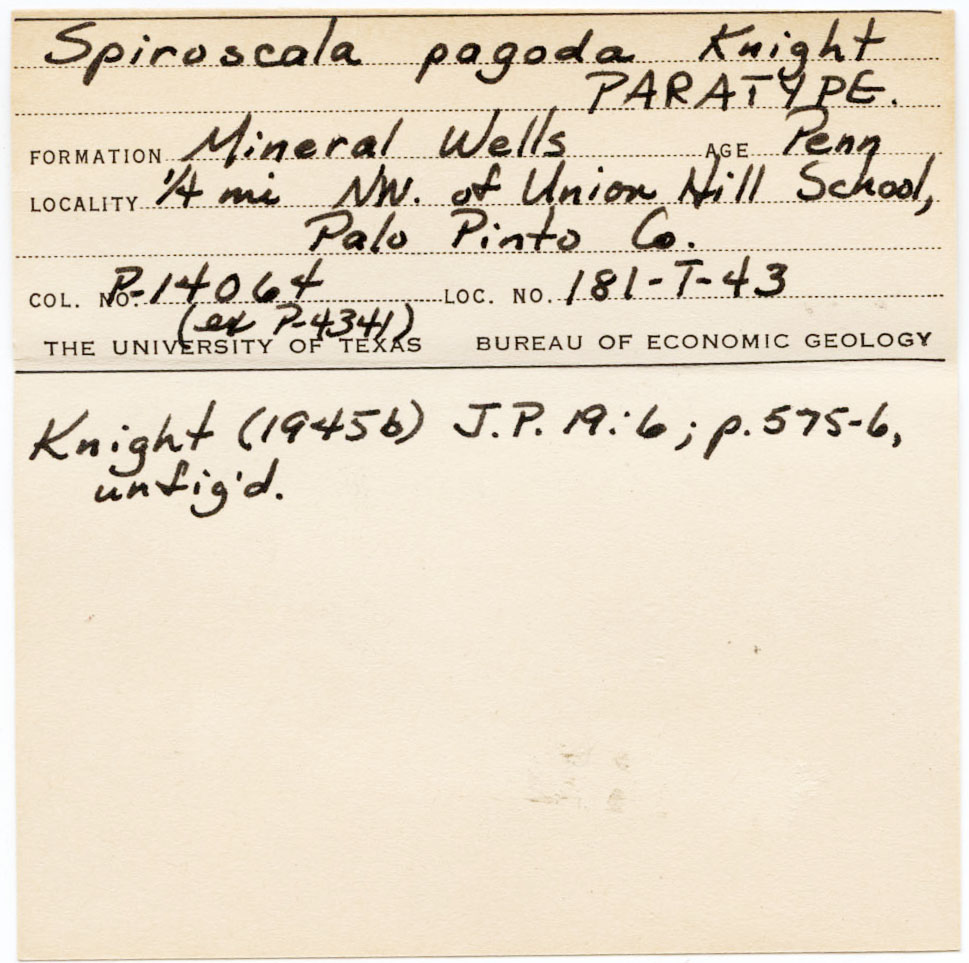 Spiroscala pagoda Knight
PARATYPE.
FORMATION Mineral Wells AGE Penn
LOCALITY 1/4 mi NW. of Union Hill School,
Palo Pinto Co.
COL. NO. P-14064 LOC. NO. 181-T-43
(ex P-4341)
THE UNIVERSITY OF TEXAS BUREAU OF ECONOMIC GEOLOGY
Knight (1945b) J.P. 19:6; p. 575-6,
unfig'd.